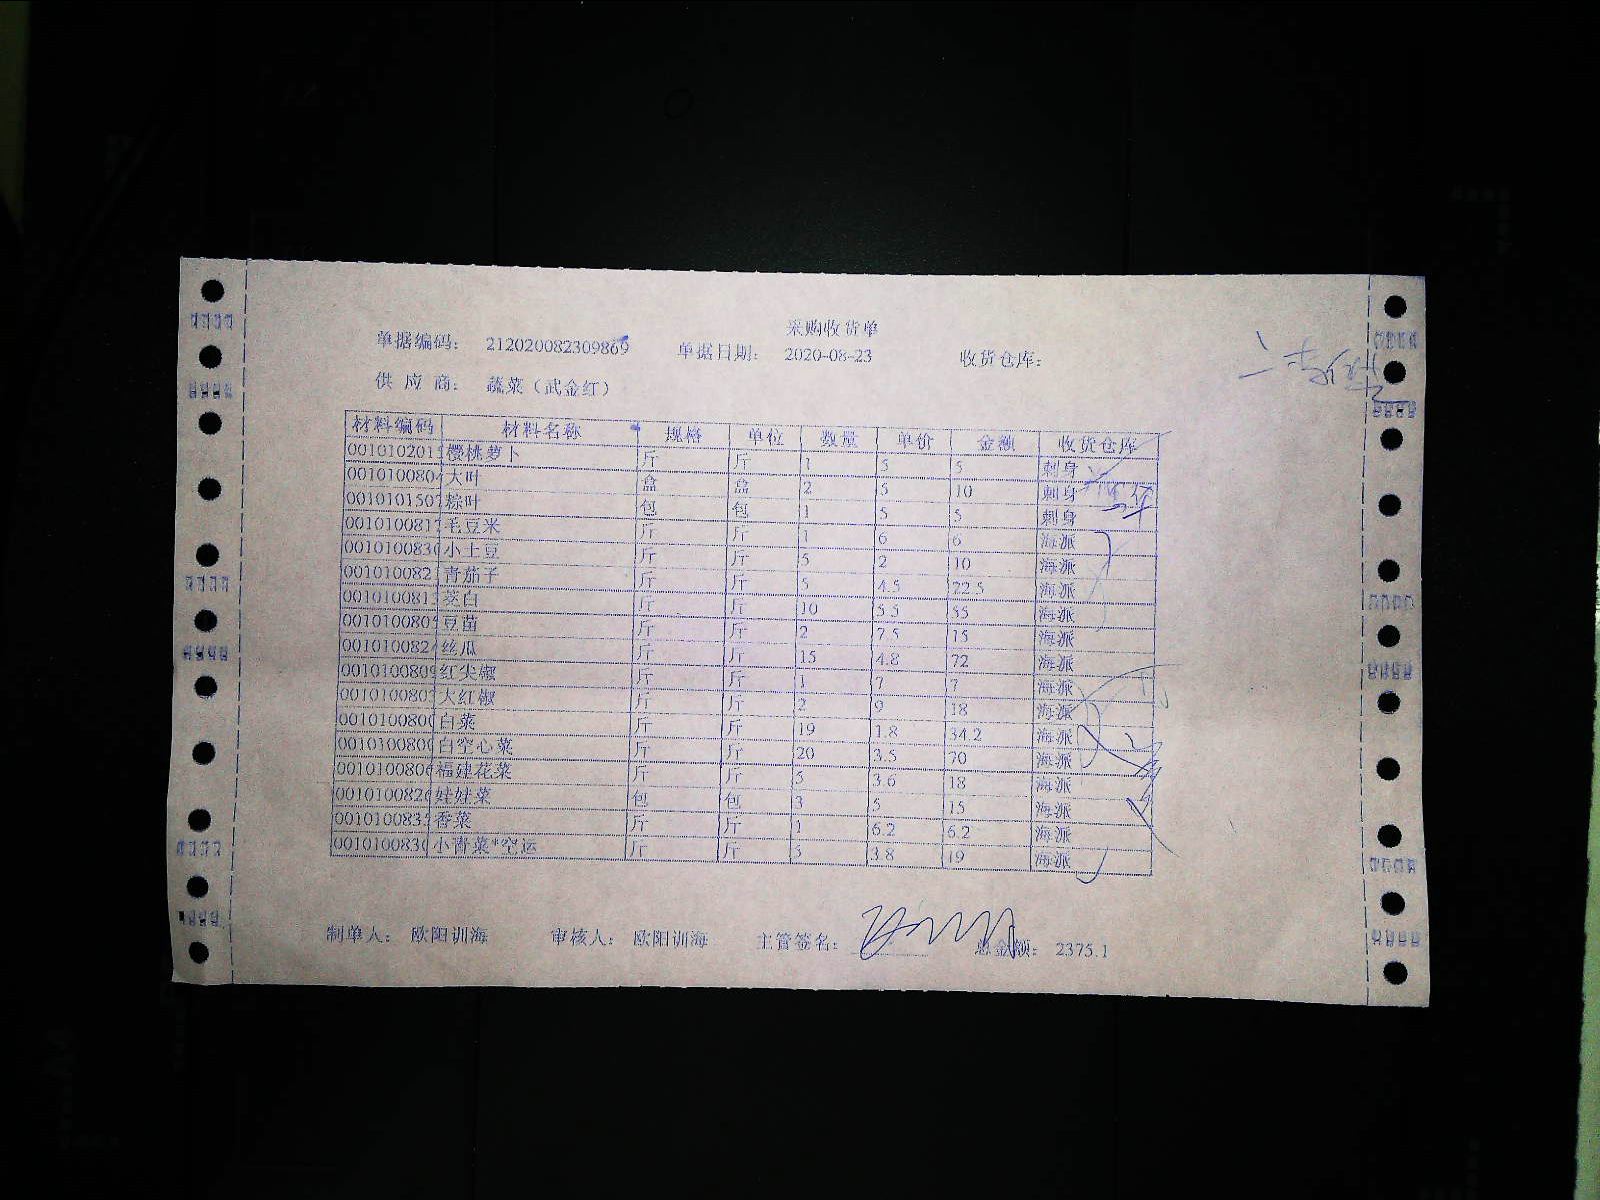 采购收货单
单据编码: 212020082309869 单据日期: 2020-08-23 收货仓库:
供 应 商: 蔬菜（武金红）
材料编码 材料名称 规格 单位 数量 单价 金额 收货仓库
001010201 樱桃萝卜 斤 斤 1 5 5 刺身
001010080 大叶 盒 盒 2 5 10 刺身
001010150 粽叶 包 包 1 5 5 刺身
001010081 毛豆米 斤 斤 1 6 6 海派
001010083 小土豆 斤 斤 5 2 10 海派
001010082 青茄子 斤 斤 5 4.5 22.5 海派
001010081 茭白 斤 斤 10 5.5 55 海派
001010080 豆苗 斤 斤 2 7.5 15 海派
001010082 丝瓜 斤 斤 15 4.8 72 海派
001010080 红尖椒 斤 斤 1 7 7 海派
001010080 大红椒 斤 斤 2 9 18 海派
001010080 白菜 斤 斤 19 1.8 34.2 海派
001010080 白空心菜 斤 斤 20 3.5 70 海派
001010080 福建花菜 斤 斤 5 3.6 18 海派
001010082 娃娃菜 包 包 3 5 15 海派
001010083 香菜 斤 斤 1 6.2 6.2 海派
001010083 小青菜*空运 斤 斤 5 3.8 19 海派
制单人: 欧阳训海 审核人: 欧阳训海 主管签名: 总金额: 2375.1